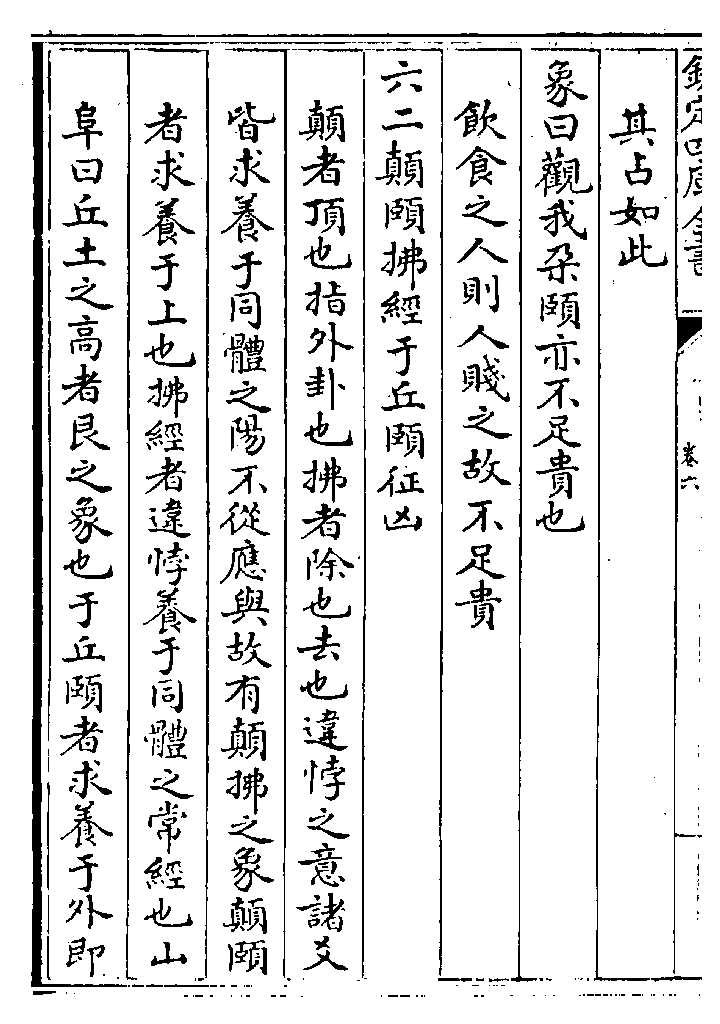 欽定四庫全書
卷六
其占如此
象曰觀我朶頤亦不足貴也
飲食之人則人賤之故不足貴
六二顛頤拂經于丘頤征凶
顛者頂也指外卦也拂者除也去也違悖之意諸爻
皆求養于同體之陽不從應與故有顛拂之象顛頤
者求養于上也拂經者違悖養于同體之常經也山
阜曰丘土之高者艮之象也于丘頤者求養于外即